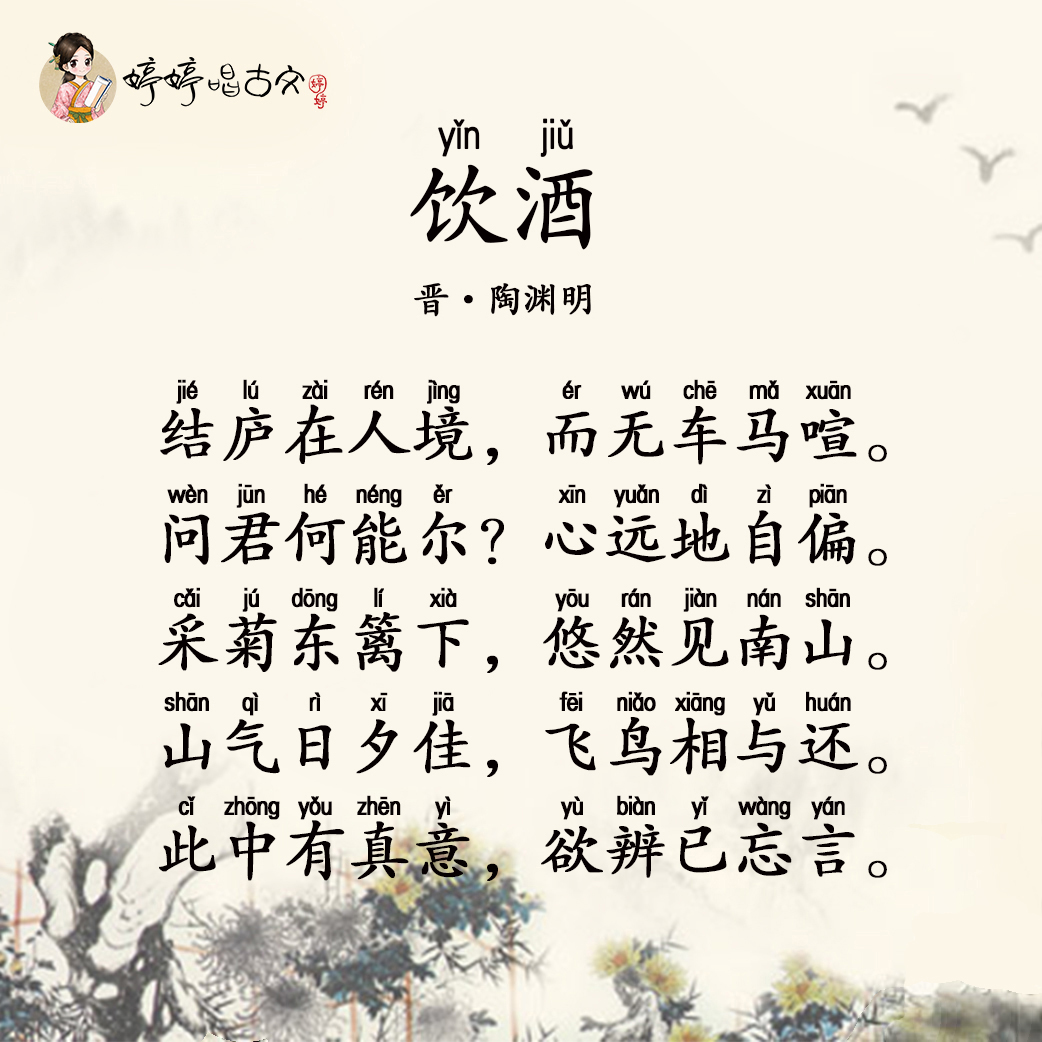 婷婷唱古文
婷婷
yǐn jiǔ
饮酒
晋·陶渊明
jié lú zài rén jìng ér wú chē mǎ xuān
结庐在人境，而无车马喧。
wèn jūn hé néng ěr xīn yuǎn dì zì piān
问君何能尔？心远地自偏。
cǎi jú dōng lí xià yōu rán jiàn nán shān
采菊东篱下，悠然见南山。
shān qì rì xī jiā fēi niǎo xiāng yǔ huán
山气日夕佳，飞鸟相与还。
cǐ zhōng yǒu zhēn yì yù biàn yǐ wàng yán
此中有真意，欲辨已忘言。